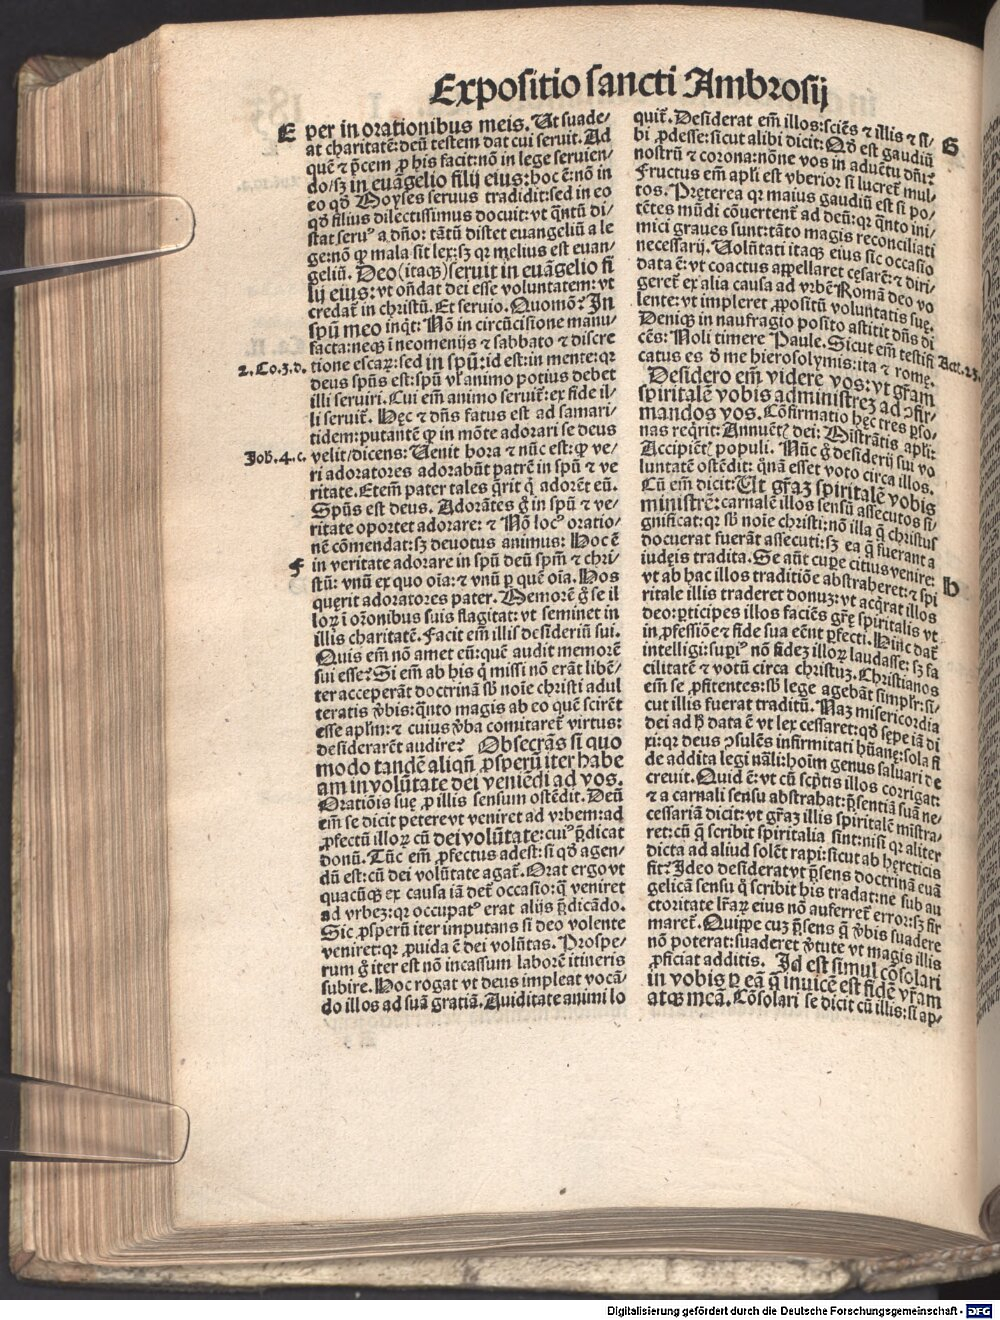 Expositio sancti Ambrosij
E
per in orationibus meis. Ut suade/
at charitatē: deū testem dat cui seruit. Ad
quē ⁊ p̄cem ꝓ his facit: nō in lege seruien/
do/sꝫ in euāgelio filij eius: hoc ē: nō in
eo qd̓ Moyses seruus tradidit: sed in eo
qd̓ filius dilectissimus docuit: vt q̄ntū di/
stat seruꝰ a dn̄o: tātū distet euangeliū a le
ge: nō ꝙ mala sit lex: sꝫ qꝛ melius est euan/
geliū. Deo (itaqꝫ) seruit in euāgelio fi
lij eius: vt on̄dat dei esse voluntatem: vt
credat̄ in christū. Et seruio. Quomō? In
spū meo inqt̄: Nō in circūcisione manu/
facta: neqꝫ ī neomenijs ⁊ sabbato ⁊ discre
2. Co. 3. d.
tione escaꝝ: sed in spū: id est: in mente: qꝛ
deus spūs est: spū vl̓ animo potius debet
illi seruiri. Cui em̄ animo seruit̄: ex fide il/
li seruit̄. Hęc ⁊ dn̄s fatus est ad samari/
tidem: putantē ꝙ in mōte adorari se deus
Joh. 4. c.
velit/dicens: Uenit hora ⁊ nūc est: ꝙ ve/
ri adoratores adorabūt patrē in spū ⁊ ve
ritate. Etem̄ pater tales q̄rit q̇ adorēt eū.
Spūs est deus. Adorātes g̊ in spū ⁊ ve/
ritate oportet adorare: ⁊ Nō locꝰ oratio/
nē cōmendat: sꝫ deuotus animus: Hoc ē
F
in veritate adorare in spū deū spm̄ ⁊ chri/
stū: vnū ex quo oīa: ⁊ vnū ꝑ quē oīa. Hos
quęrit adoratores pater. Memorē g̊ se il
loꝝ ī orōnibus suis flagitat: vt seminet in
illis charitatē. Facit em̄ illis desideriū sui.
Quis em̄ nō amet eū: quē audit memorē
sui esse? Si em̄ ab his q̇ missi nō erāt libē/
ter acceperāt doctrinā sb̓ noīe christi adul
teratis v̓bis: q̄nto magis ab eo quē scirēt
esse apl̓m: ⁊ cuius v̓ba comitaret̄ virtus:
desiderarēt audire? Obsecrās si quo
modo tandē aliqn̄ ꝓsperū iter habe
am in volūtate dei veniēdi ad vos.
Oratiōis suę ꝓ illis sensum ostēdit. Deū
em̄ se dicit petere vt veniret ad vrbem: ad
ꝓfectū illoꝝ cū dei volūtate: cuiꝰ p̄dicat
donū. Tūc em̄ ꝓfectus adest: si qd̓ agen/
dū est: cū dei volūtate agat̄. Orat ergo vt
quacūqꝫ ex causa iā det̄ occasio: q̄ veniret
ad vrbeꝫ: qꝛ occupatꝰ erat alijs p̄dicādo.
Sic ꝓsperū iter imputans si deo volente
veniret: qꝛ ꝓuida ē dei volūtas. Prospe/
rum g̊ iter est nō incassum laborē itineris
subire. Hoc rogat vt deus impleat vocā/
do illos ad suā gratiā. Auiditate animi lo
quit̄. Desiderat em̄ illos: sciēs ⁊ illis ⁊ si/
G
bi ꝓdesse: sicut alibi dicit: Qd̓ est gaudiū
nostrū ⁊ corona: nōne vos in aduētu dn̄i?
Fructus em̄ apl̓i est vberior si lucret̄ mul/
tos. Pręterea qꝛ maius gaudiū est si po/
tētes mūdi cōuertent̄ ad deū: qꝛ q̄nto ini/
mici graues sunt: tāto magis reconciliati
necessarij. Uolūtati itaqꝫ eius sic occasio
data ē: vt coactus appellaret cęsarē: ⁊ diri/
geret̄ ex alia causa ad vrbē Romā deo vo
lente: vt impleret ꝓpositū voluntatis suę.
Deniqꝫ in naufragio posito astitit dn̄s di
cēs: Noli timere Paule. Sicut em̄ testifi
catus es d̓ me hierosolymis: ita ⁊ romę.
Act. 23.
Desidero em̄ videre vos: vt gr̄am
spiritalē vobis administreꝫ ad ↄfir/
mandos vos. Cōfirmatio hęc tres ꝑso/
nas reqrit: Annuētꝭ dei: Mistrātis apl̓i:
Accipiētꝭ populi. Nūc g̊ desiderij sui vo
luntatē ostēdit: q̄nā esset voto circa illos.
Cū em̄ dicit: Ut gr̄aꝫ spiritalē vobis
ministrē: carnalē illos sensū assecutos si/
gnificat: qꝛ sb̓ noīe christi: nō illa q̄ christus
docuerat fuerāt assecuti: sꝫ ea q̄ fuerant a
iudęis tradita. Se aūt cuꝑe citius venire:
H
vt ab hac illos traditiōe abstraheret: ⁊ spi
ritale illis traderet donuꝫ: vt acq̇rat illos
deo: ꝑticipes illos faciēs gr̄ę spiritalis vt
in ꝓfessiōe ⁊ fide sua eēnt ꝑfecti. Hinc dat̄
intelligi: supiꝰ nō fideꝫ illoꝝ laudasse: sꝫ fa
cilitatē ⁊ votū circa christuꝫ. Christianos
em̄ se ꝓfitentes: sb̓ lege agebāt simplr̓: si/
cut illis fuerat traditū. Naꝫ misericordia
dei ad h̓ data ē vt lex cessaret: qd̓ sępe iā di
xi: qꝛ deus ↄsulēs infirmitati hūanę: sola fi
de addita legi nāli: hoīm genus saluari de
creuit. Quid ē: vt cū scp̄tis illos corrigat:
⁊ a carnali sensu abstrahat: p̄sentiā suā ne/
cessariā dicit: vt gr̄aꝫ illis spiritalē mistra/
ret: cū q̄ scribit spiritalia sint: nisi qꝛ aliter
dicta ad aliud solēt rapi: sicut ab hęreticis
fit? Ideo desiderat vt p̄sens doctrinā euā
gelicā sensu q̊ scribit his tradat: ne sub au
ctoritate lr̄aꝝ eius nō auferret̄ error: sꝫ fir
maret̄. Quippe cuꝫ p̄sens q̄ v̓bis suadere
nō poterat: suaderet v̓tute vt magis illis
ꝓficiat additis. Id est simul cōsolari
in vobis ꝑ eā q̄ inuicē est fidē vr̄am
atqꝫ meā. Cōsolari se dicit cū illis: si ap/
Digitalisierung gefördert durch die Deutsche Forschungsgemeinschaft - DFG